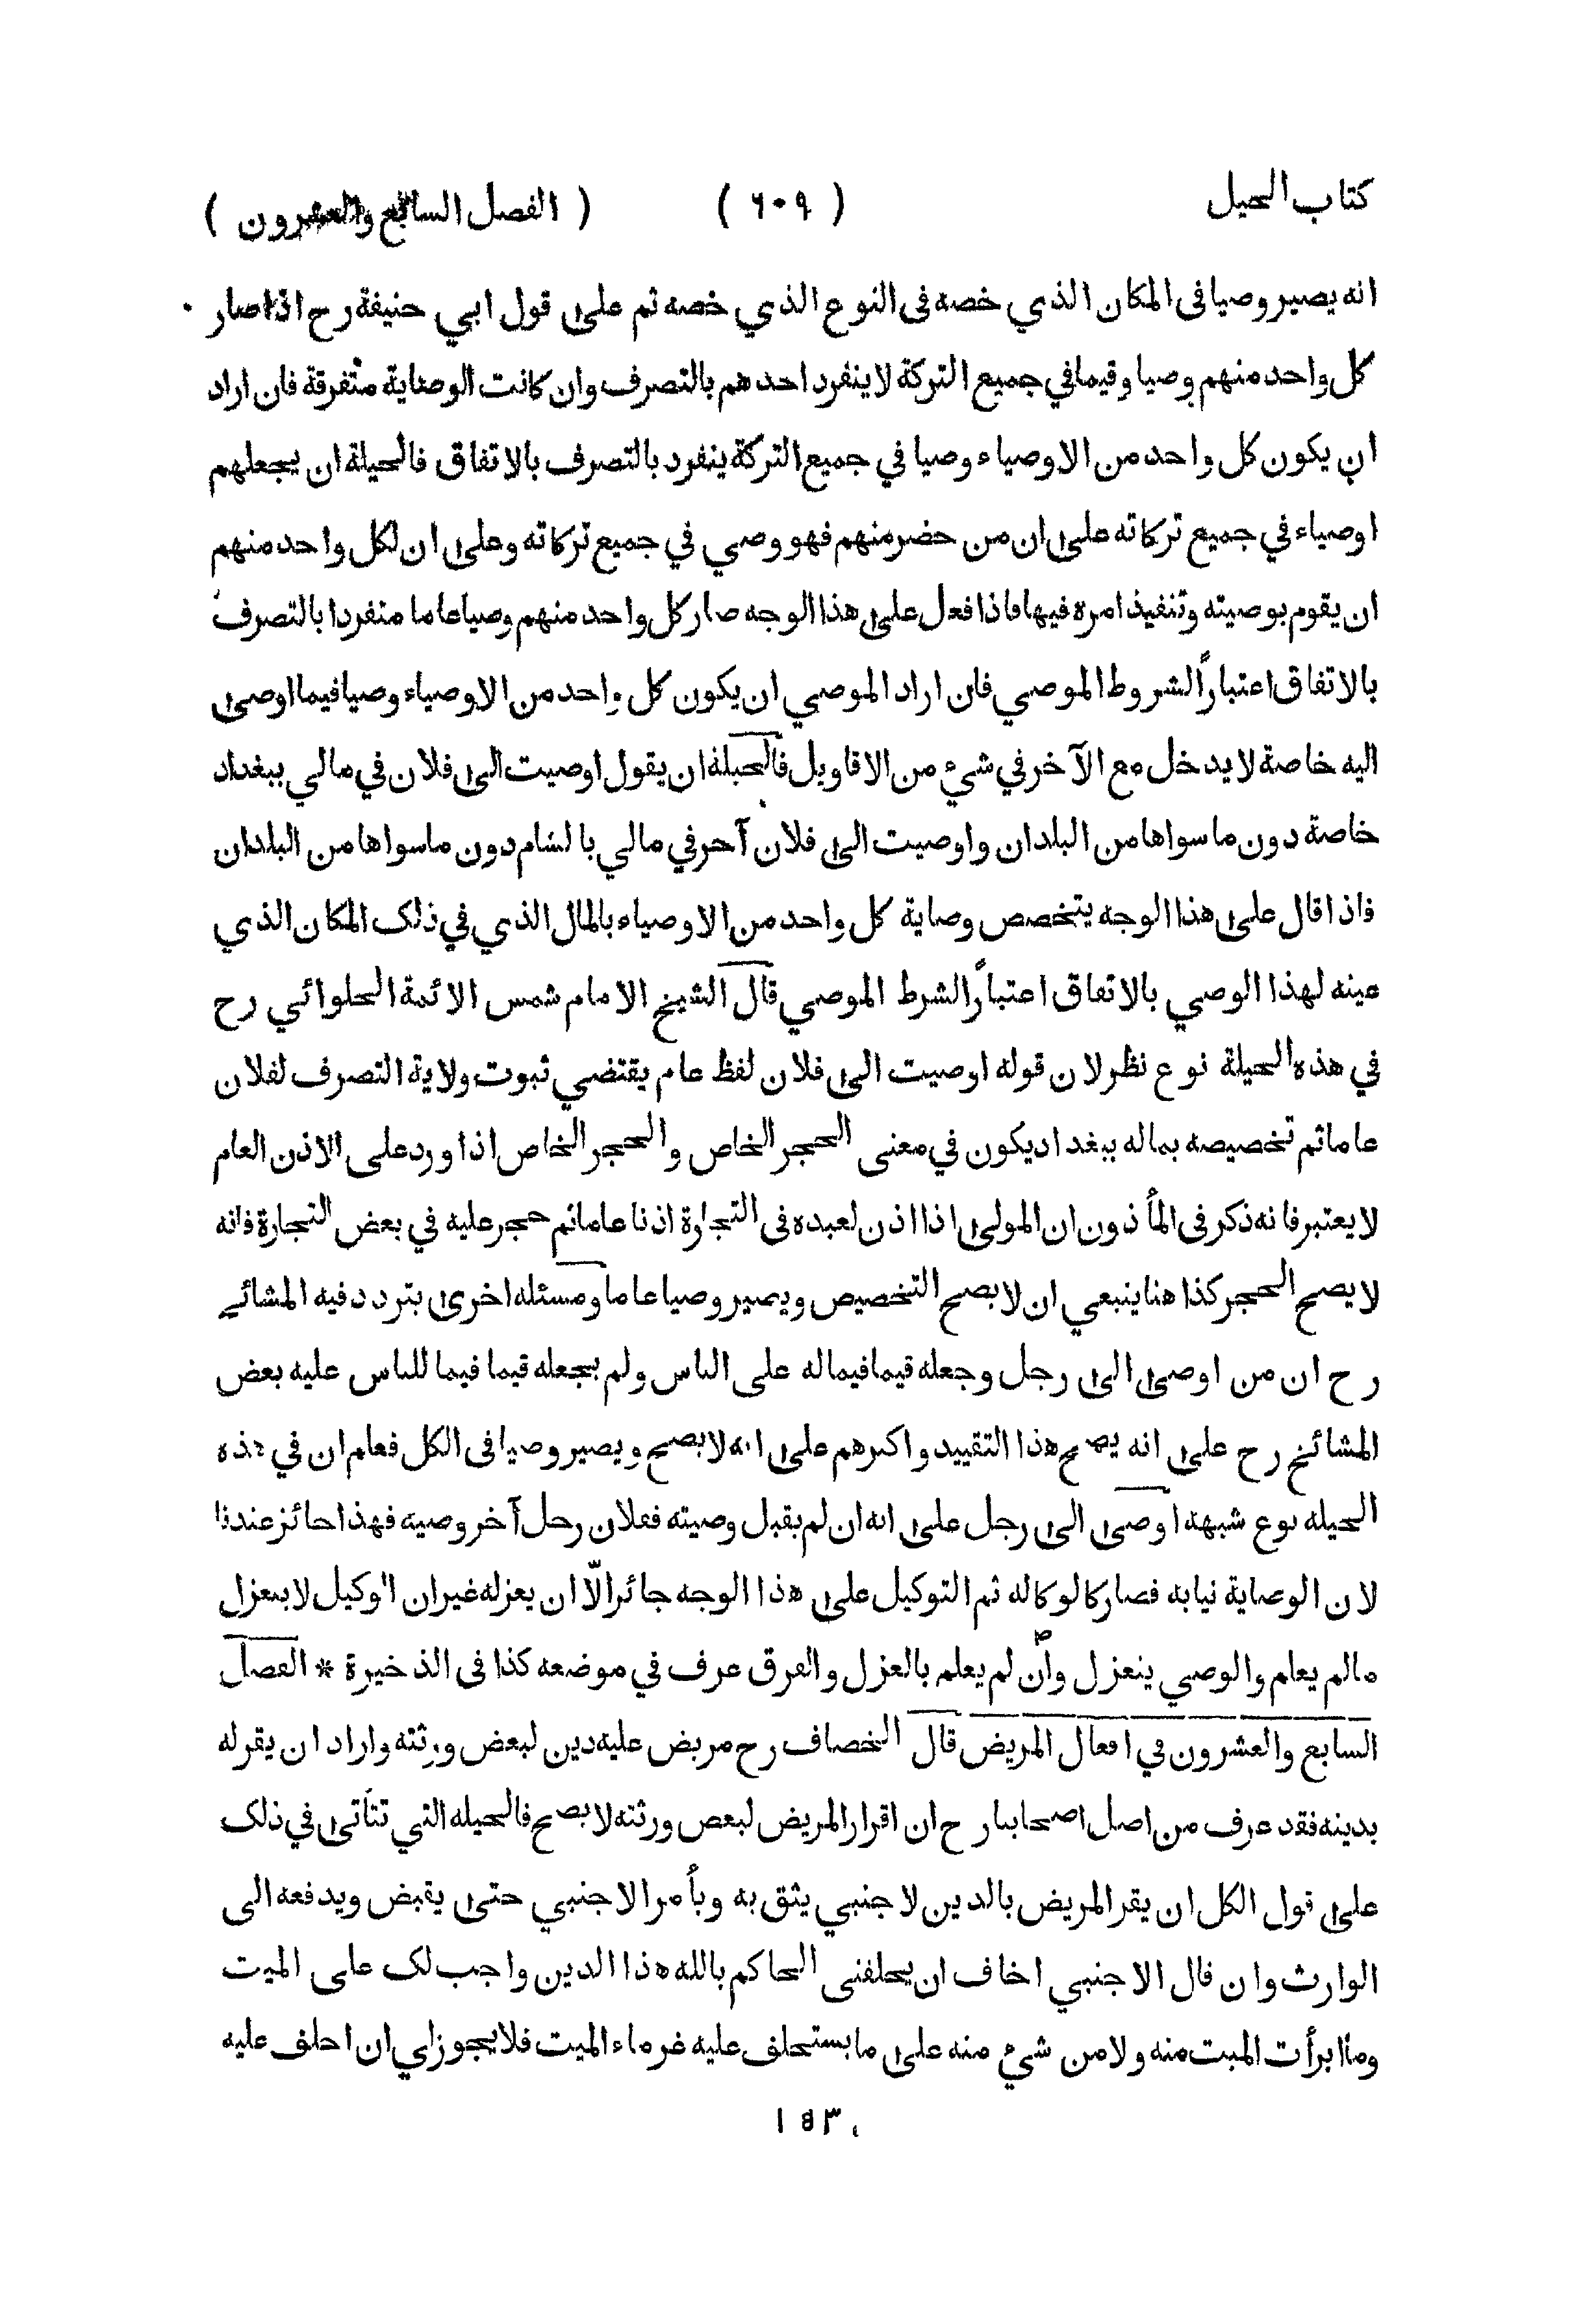 كتاب الحيل ( ٦٠٩ ) ( الفصل السابع والعشرون )
انه يصير وصيا فى المكان الذي خصه فى النوع الذي خصه ثم على قول ابي حنيفة رح اذا صار
كل واحد منهم وصيا وقيما في جميع التركة لا ينفرد احدهم بالتصرف وان كانت الوصاية متفرقة فان اراد
ان يكون كل واحد من الاوصياء وصيا في جميع التركة ينفرد بالتصرف بالاتفاق فالحيلة ان يجعلهم
اوصياء في جميع تركاته على ان من حضر منهم فهو وصي في جميع تركاته وعلى ان لكل واحد منهم
ان يقوم بوصيته وتنفيذ امره فيها فاذا فعل على هذا الوجه صار كل واحد منهم وصيا عاما منفردا بالتصرف
بالاتفاق اعتباراً لشروط الموصي فان اراد الموصي ان يكون كل واحد من الاوصياء وصيا فيما اوصى
اليه خاصة لا يدخل مع الآخر في شيء من الاقاويل فالحيلة ان يقول اوصيت الى فلان في مالي ببغداد
خاصة دون ما سواها من البلدان واوصيت الى فلان آخر في مالي بالشام دون ما سواها من البلدان
فاذا قال على هذا الوجه يتخصص وصاية كل واحد من الاوصياء بالمال الذي في ذلك المكان الذي
عينه لهذا الوصي بالاتفاق اعتباراً لشرط الموصي قال الشيخ الامام شمس الائمة الحلوائي رح
في هذه الحيلة نوع نظر لان قوله اوصيت الى فلان لفظ عام يقتضي ثبوت ولاية التصرف لفلان
عاما ثم تخصيصه بماله ببغداد يكون في معنى الحجر الخاص والحجر الخاص اذا ورد على الاذن العام
لا يعتبر فانه ذكر فى المأذون ان المولى اذا اذن لعبده فى التجارة اذنا عاما ثم حجر عليه في بعض التجارة فانه
لا يصح الحجر كذا هنا ينبغي ان لا يصح التخصيص ويصير وصيا عاما ومسئله اخرى يتردد فيه المشائخ
رح ان من اوصى الى رجل وجعله قيما فيما له على الناس ولم يجعله قيما فيما للناس عليه بعض
المشائخ رح على انه يصح هذا التقييد واكثرهم على انه لا يصح ويصير وصيا فى الكل فعلم ان في هذه
الحيله نوع شبهه اوصى الى رجل على انه ان لم يقبل وصيته ففلان رجل آخر وصيه فهذا جائز عندنا
لان الوصاية نيابه فصار كالوكاله ثم التوكيل على هذا الوجه جائز الّا ان يعزله غير ان الوكيل لا ينعزل
مالم يعلم والوصي ينعزل وان لم يعلم بالعزل والفرق عرف في موضعه كذا فى الذخيرة * الفصل
السابع والعشرون في افعال المريض قال الخصاف رح مريض عليه دين لبعض ورثته واراد ان يقر له
بدينه فقد عرف من اصل اصحابنا رح ان اقرار المريض لبعض ورثته لا يصح فالحيله التي تتأتى في ذلك
على قول الكل ان يقر المريض بالدين لاجنبي يثق به ويأمر الاجنبي حتى يقبض ويدفعه الى
الوارث وان قال الاجنبي اخاف ان يحلفنى الحاكم بالله هذا الدين واجب لك على الميت
وما ابرأت الميت منه ولا من شيء منه على ما يستحلف عليه غرماء الميت فلا يجوز لي ان احلف عليه
١٥٣